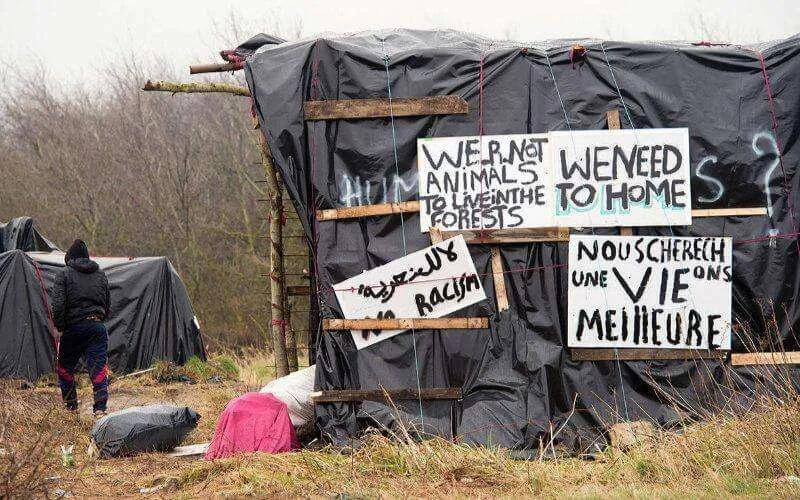 WE R NOT
ANIMALS
TO LIVE IN THE
FORESTS
WE NEED
TO HOME
لا للعنصرية
NO RACISM
NOUS CHERECH
UNE VIE ONS
MEILLEURE
HUM
S ?